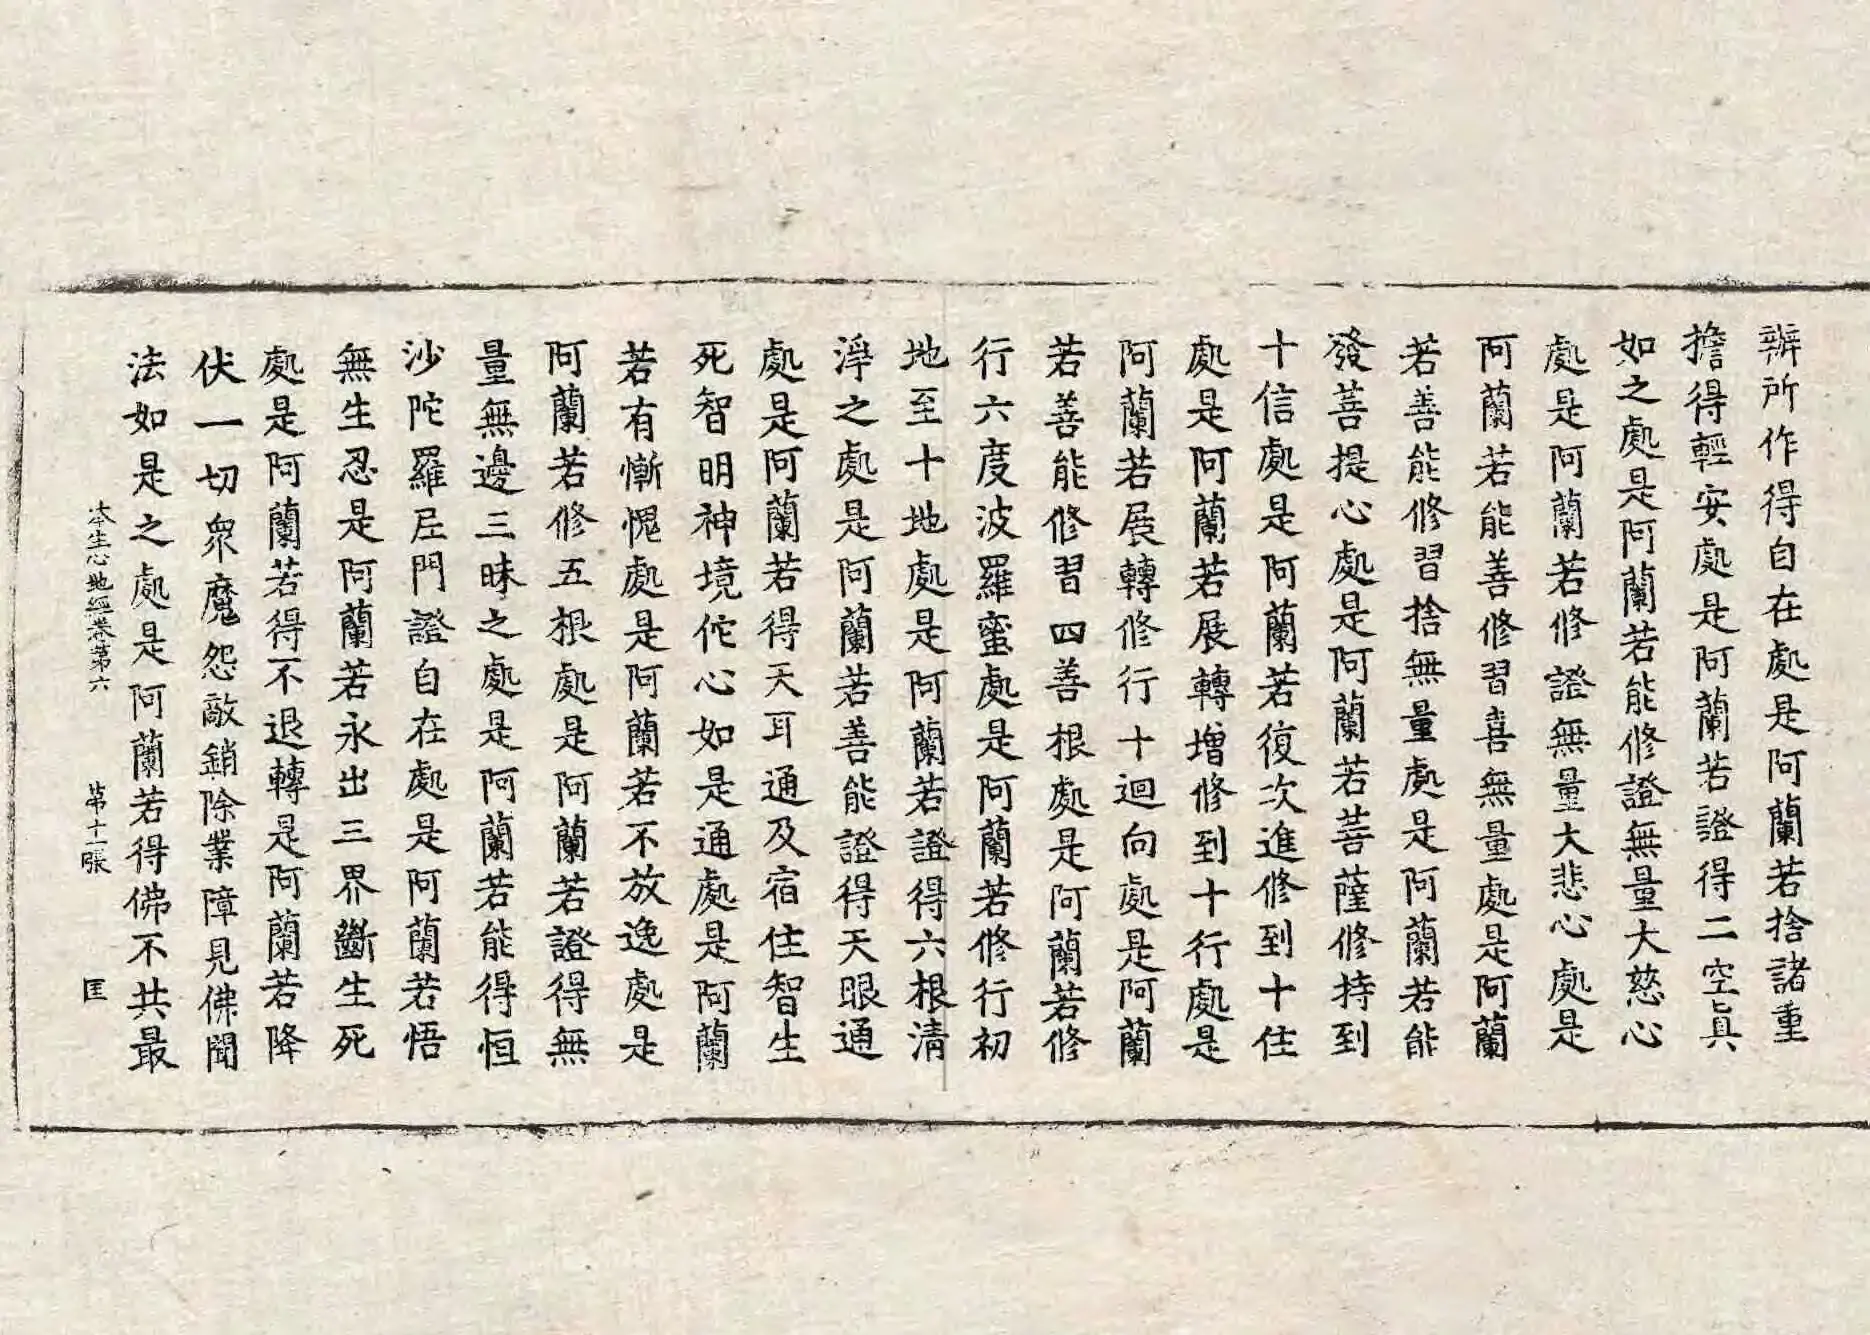 辦所作得自在處是阿蘭若捨諸重
擔得輕安處是阿蘭若證得二空真
如之處是阿蘭若能修證無量大慈心
處是阿蘭若修證無量大悲心處是
阿蘭若能善修習喜無量處是阿蘭
若善能修習捨無量處是阿蘭若能
發菩提心處是阿蘭若菩薩修持到
十信處是阿蘭若復次進修到十住
處是阿蘭若展轉增修到十行處是
阿蘭若展轉修行十迴向處是阿蘭
若善能修習四善根處是阿蘭若修
行六度波羅蜜處是阿蘭若修行初
地至十地處是阿蘭若證得六根清
淨之處是阿蘭若善能證得天眼通
處是阿蘭若得天耳通及宿住智生
死智明神境佗心如是通處是阿蘭
若有慚愧處是阿蘭若不放逸處是
阿蘭若修五根處是阿蘭若證得無
量無邊三昧之處是阿蘭若能得恒
沙陀羅尼門證自在處是阿蘭若悟
無生忍是阿蘭若永出三界斷生死
處是阿蘭若得不退轉是阿蘭若降
伏一切眾魔怨敵銷除業障見佛聞
法如是之處是阿蘭若得佛不共最
本生心地經卷第六 第十一張 匡